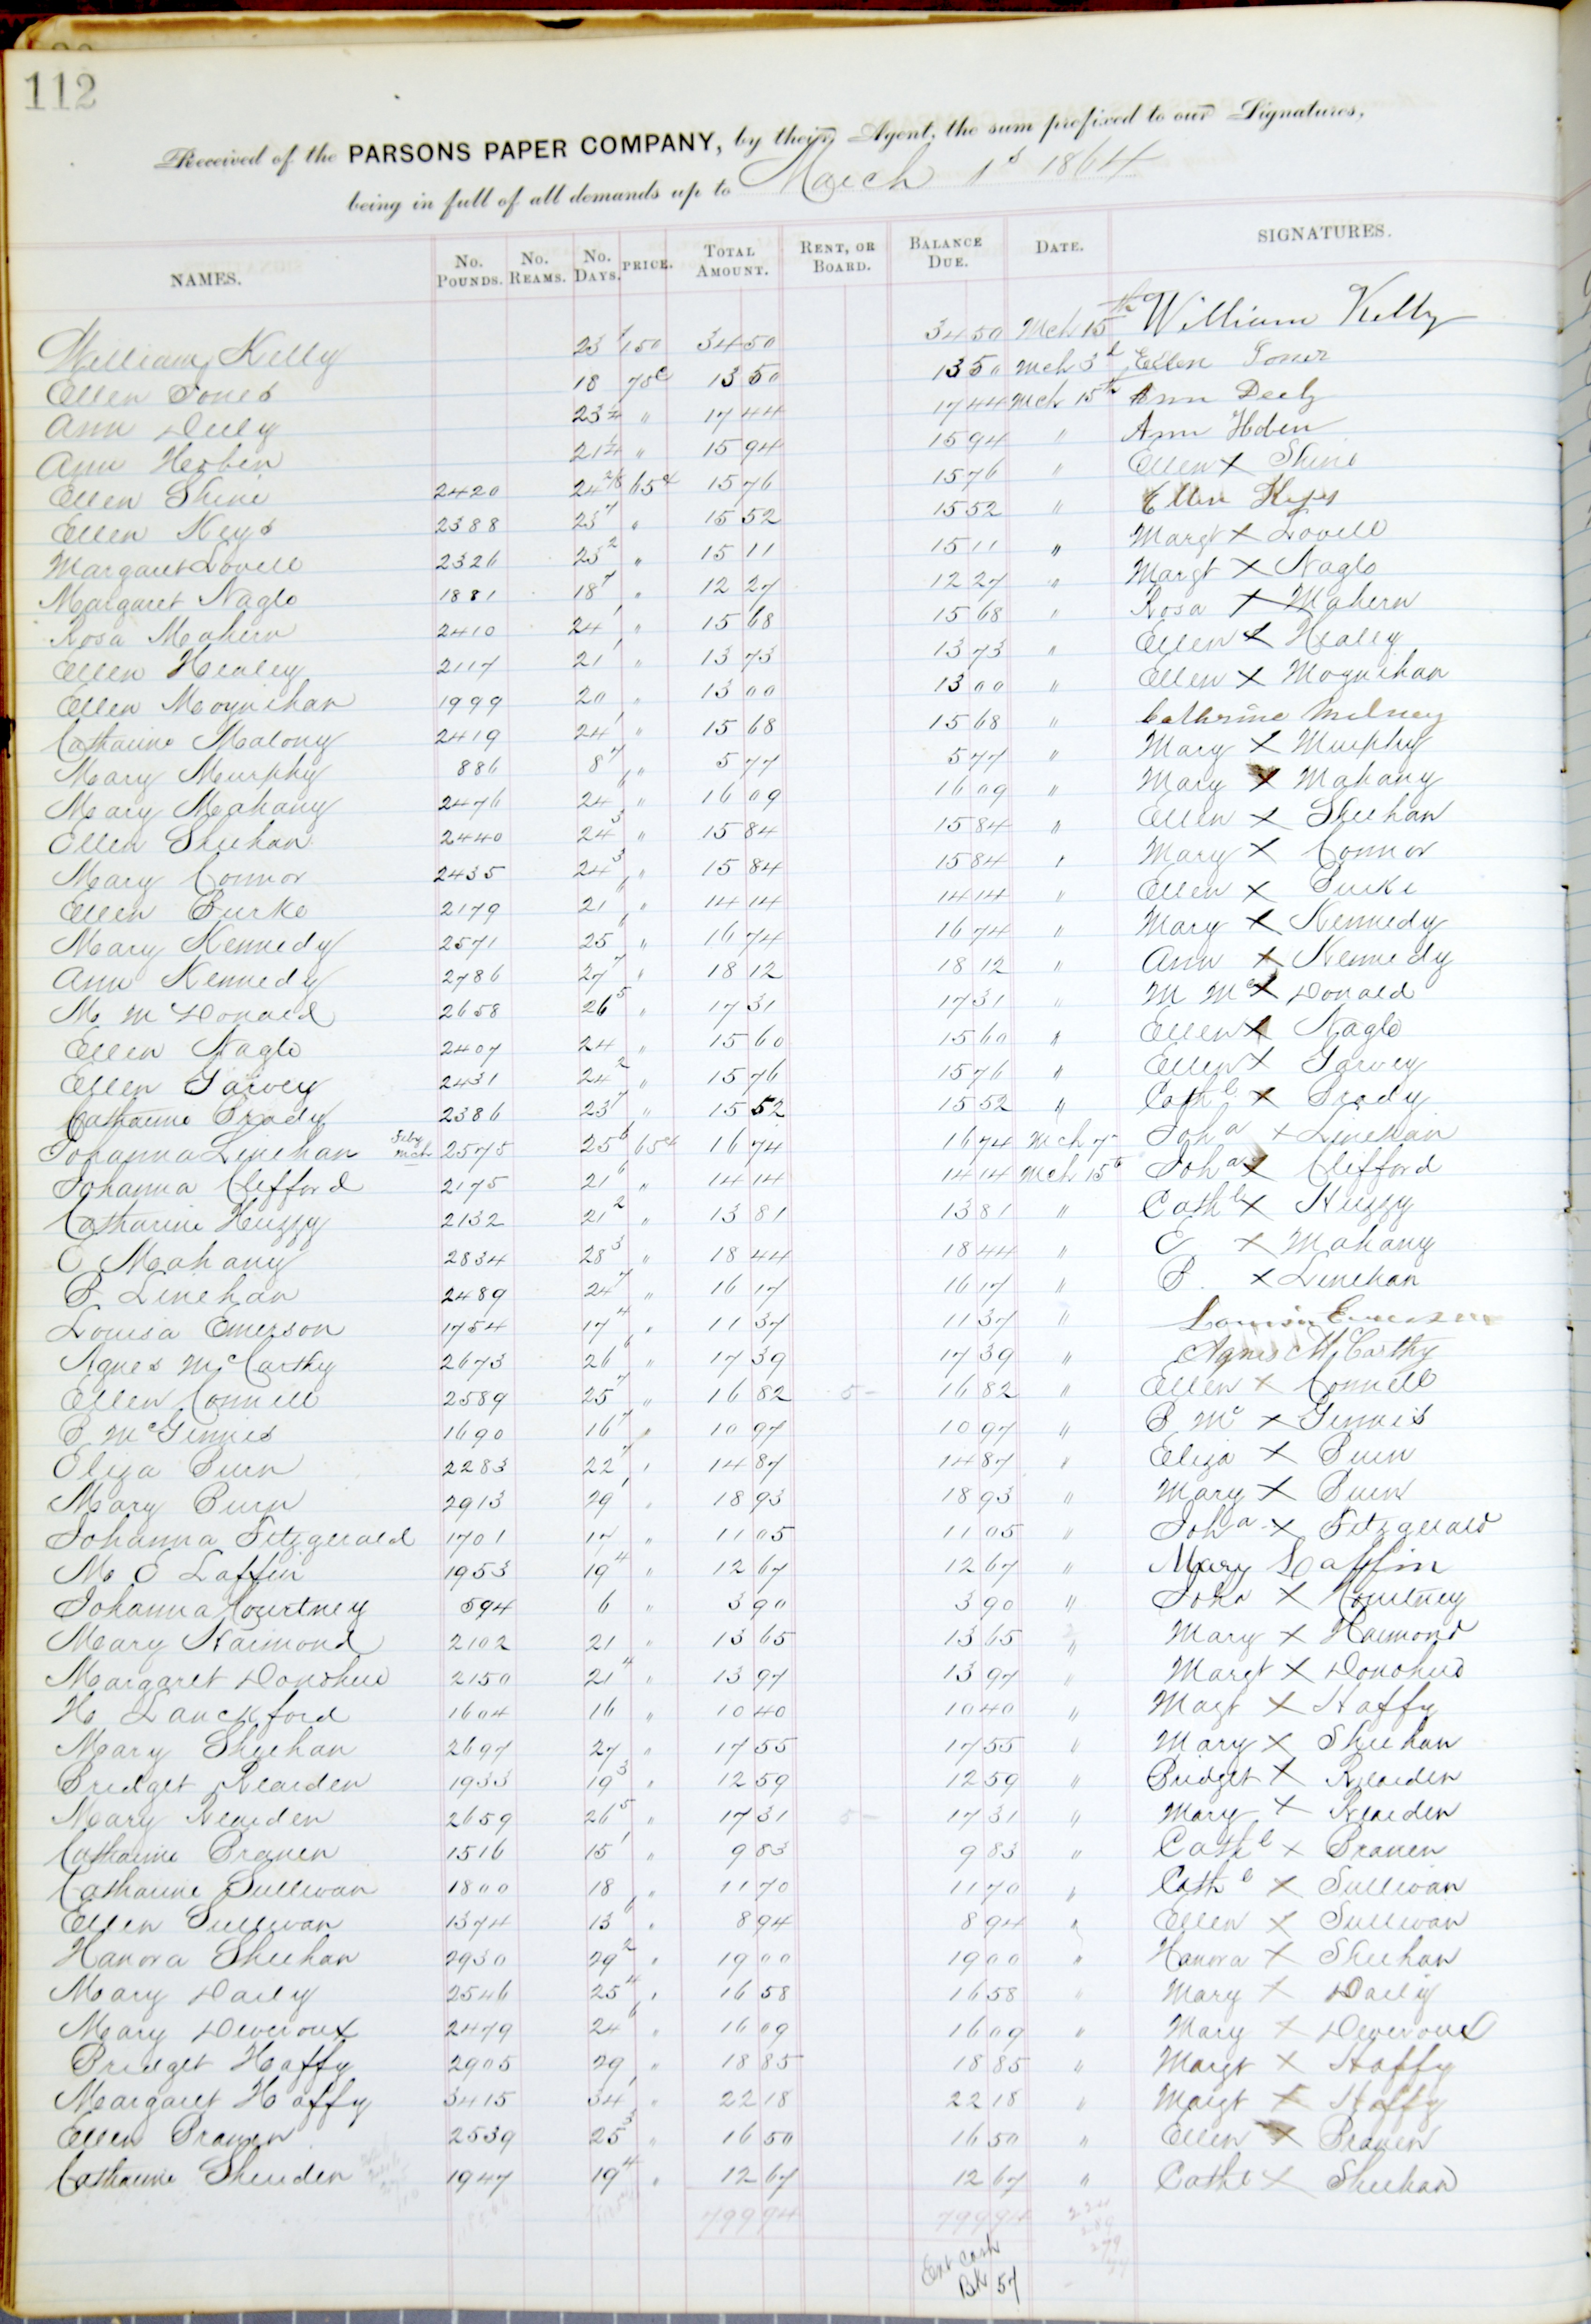 112
Received of the PARSONS PAPER COMPANY, by their Agent, the sum prefixed to our Signatures,
being in full of all demands up to March 1st 1864
NAMES. No. Pounds. No. Reams. No. Days. PRICE. Total Amount. Rent, or Board. Balance Due. Date. SIGNATURES.
William Kelly 23 150 34 50 34 50 Mch 15th William Kelly
Ellen Toner 18 75c 13 50 13 50 Mch 3d Ellen Toner
Ann Deely 23¼ " 17 44 17 44 Mch 15th Ann Deely
Ann Hoben 21¼ " 15 94 15 94 " Ann Hoben
Ellen Shine 2420 24 2/8 65c 15 76 15 76 " Ellen X Shine
Ellen Keys 2388 23 7 " 15 52 15 52 " Ellen Keyes
Margaret Lovell 2326 23 2 " 15 11 15 11 " Margt X Lovell
Margaret Nagle 1881 18 7 " 12 27 12 27 " Margt X Nagle
Rosa Mahern 2410 24 1 " 15 68 15 68 " Rosa X Mahern
Ellen Healey 2117 21 1 " 13 73 13 73 " Ellen X Healey
Ellen Moynihan 1999 20 " 13 00 13 00 " Ellen X Moynihan
Catharine Malony 2419 24 1 " 15 68 15 68 " Cathrine Melney
Mary Murphy 886 8 7 " 5 77 5 77 " Mary X Murphy
Mary Mahany 2476 24 6 " 16 09 16 09 " Mary X Mahany
Ellen Sheehan 2440 24 3 " 15 84 15 84 " Ellen X Sheehan
Mary Connor 2435 24 3 " 15 84 15 84 " Mary X Connor
Ellen Burke 2179 21 6 " 14 14 14 14 " Ellen X Burke
Mary Kennedy 2571 25 6 " 16 74 16 74 " Mary X Kennedy
Ann Kennedy 2786 27 7 " 18 12 18 12 " Ann X Kennedy
M McDonald 2658 26 5 " 17 31 17 31 " M Mc X Donald
Ellen Nagle 2407 24 " 15 60 15 60 " Ellen X Nagle
Ellen Garvey 2431 24 2 " 15 76 15 76 " Ellen X Garvey
Catharine Brady 2386 23 7 " 15 52 15 52 " Cathe X Brady
Johanna Linehan Feby Mch 2575 25 6 65c 16 74 16 74 Mch 7 Joha X Linehan
Johanna Clifford 2175 21 6 " 14 14 14 14 Mch 15th Joha X Clifford
Catharine Huzzy 2132 21 2 " 13 81 13 81 " Cathe X Huzzy
E Mahany 2834 28 3 " 18 44 18 44 " E X Mahany
B Linehan 2489 24 7 " 16 17 16 17 " B. X Linehan
Louisa Emerson 1754 17 4 " 11 37 11 37 " Louisa Emerson
Agnes McCarthy 2673 26 6 " 17 39 17 39 " Agnes McCarthy
Ellen Connell 2589 25 7 " 16 82 5- 16 82 " Ellen X Connell
B McGinnis 1690 16 7 " 10 97 10 97 " B Mc X Ginnis
Eliza Burn 2283 22 7 " 14 87 14 87 " Eliza X Burn
Mary Burn 2913 29 1 " 18 93 18 93 " Mary X Burn
Johanna Fitzgerald 1701 17 " 11 05 11 05 " Joha X Fitzgerald
M E Laffin 1953 19 4 " 12 67 12 67 " Mary Laffin
Johanna Courtney 594 6 " 3 90 3 90 " Joha X Courtney
Mary Harmond 2102 21 " 13 65 13 65 " Mary X Harmond
Margaret Donohue 2150 21 4 " 13 97 13 97 " Margt X Donohue
H Lanckford 1604 16 " 10 40 10 40 " Magt X Haffy
Mary Sheehan 2697 27 " 17 55 17 55 " Mary X Sheehan
Bridget Rearden 1933 19 3 " 12 59 12 59 " Bridget X Rearden
Mary Rearden 2659 26 5 " 17 31 5- 17 31 " Mary X Rearden
Catharine Branen 1516 15 1 " 9 83 9 83 " Cathe X Branen
Catharine Sullivan 1800 18 " 11 70 11 70 " Cathe X Sullivan
Ellen Sullivan 1374 13 6 " 8 94 8 94 " Ellen X Sullivan
Hanora Sheehan 2930 29 2 " 19 00 19 00 " Hanora X Sheehan
Mary Daily 2546 25 4 " 16 58 16 58 " Mary X Daily
Mary Deveroux 2479 24 6 " 16 09 16 09 " Mary X Deveroux
Bridget Haffy 2905 29 " 18 85 18 85 " Margt X Haffy
Margaret Haffy 3415 34 1 " 22 18 22 18 " Margt X Haffy
Ellen Branen 2539 25 3 " 16 50 16 50 " Ellen X Branen
Catharine Sheeden 1947 19 4 " 12 67 12 67 " Cathe X Sheehan
799 94 799 94
Ent Cash
Bk 57